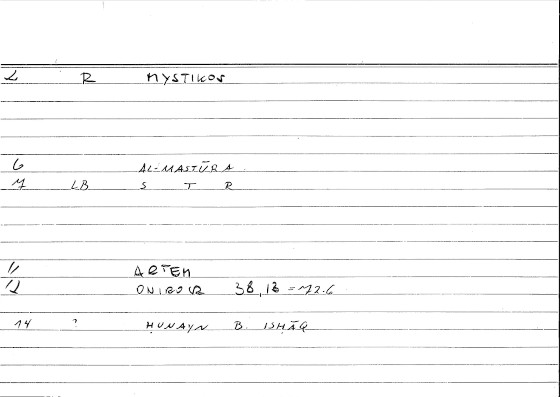 2 R MYSTIKOS
6 AL-MASTŪRA
7 LB S T R
11 ARTEM
12 ONIROCR 38,18 = 72.6
14 ? ḤUNAYN B. ISḤĀQ